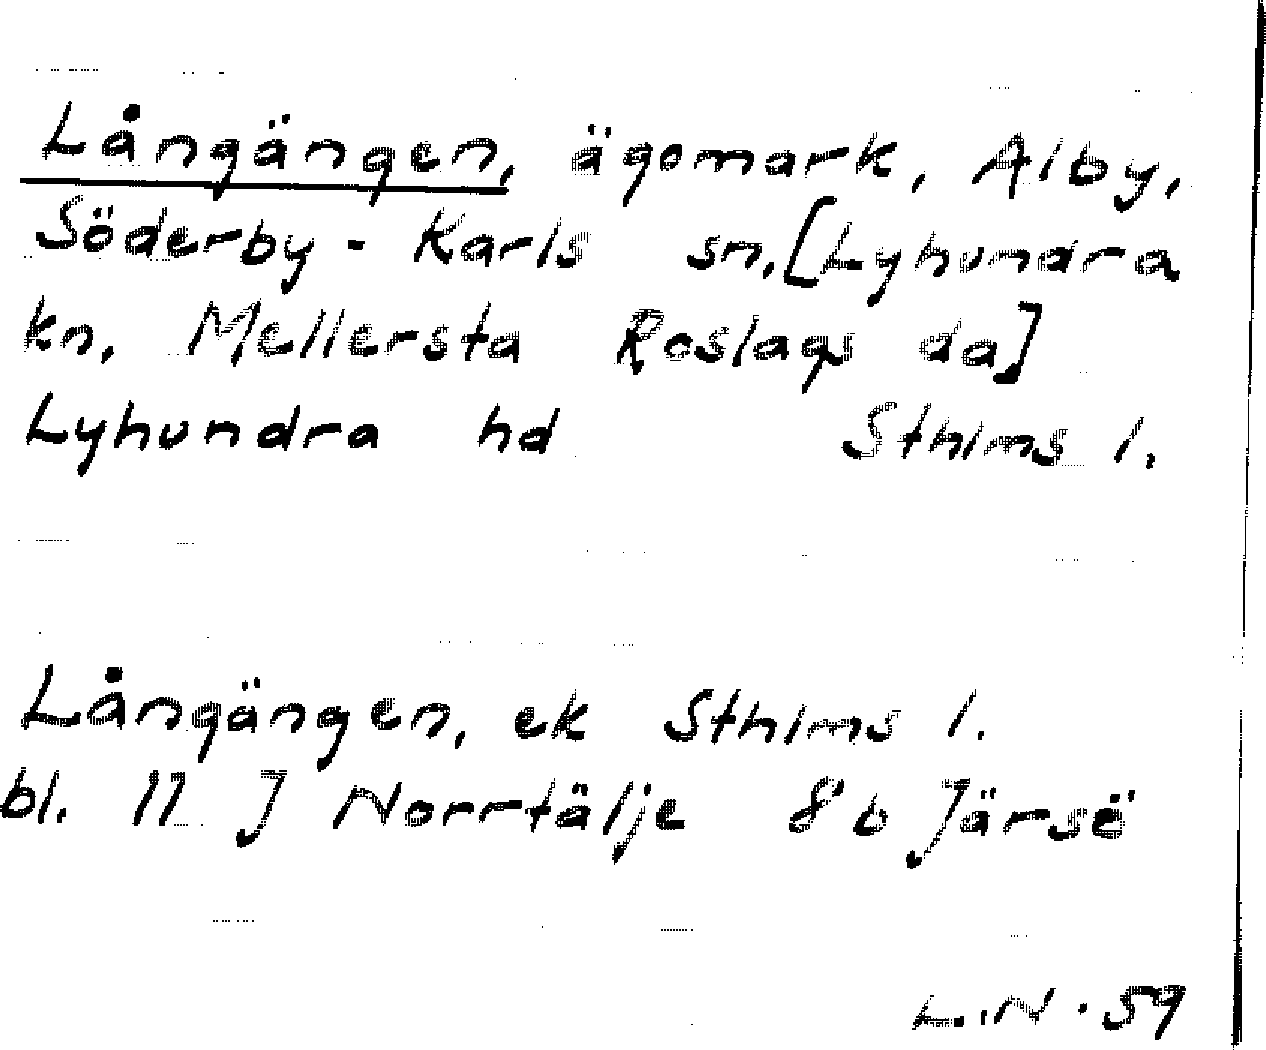 Långängen, ägomark, Alby,
Söderby - Karls sn. [Lyhundra
kn, Mellersta Roslags da]
Lyhundra hd Sthlms l.
Långängen, ek Sthlms l.
bl. 11 J Norrtälje 8 b Järsö
L.N. 59